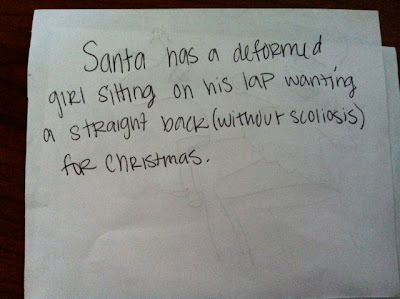 Santa has a deformed
girl sitting on his lap wanting
a straight back (without scoliosis)
for christmas.